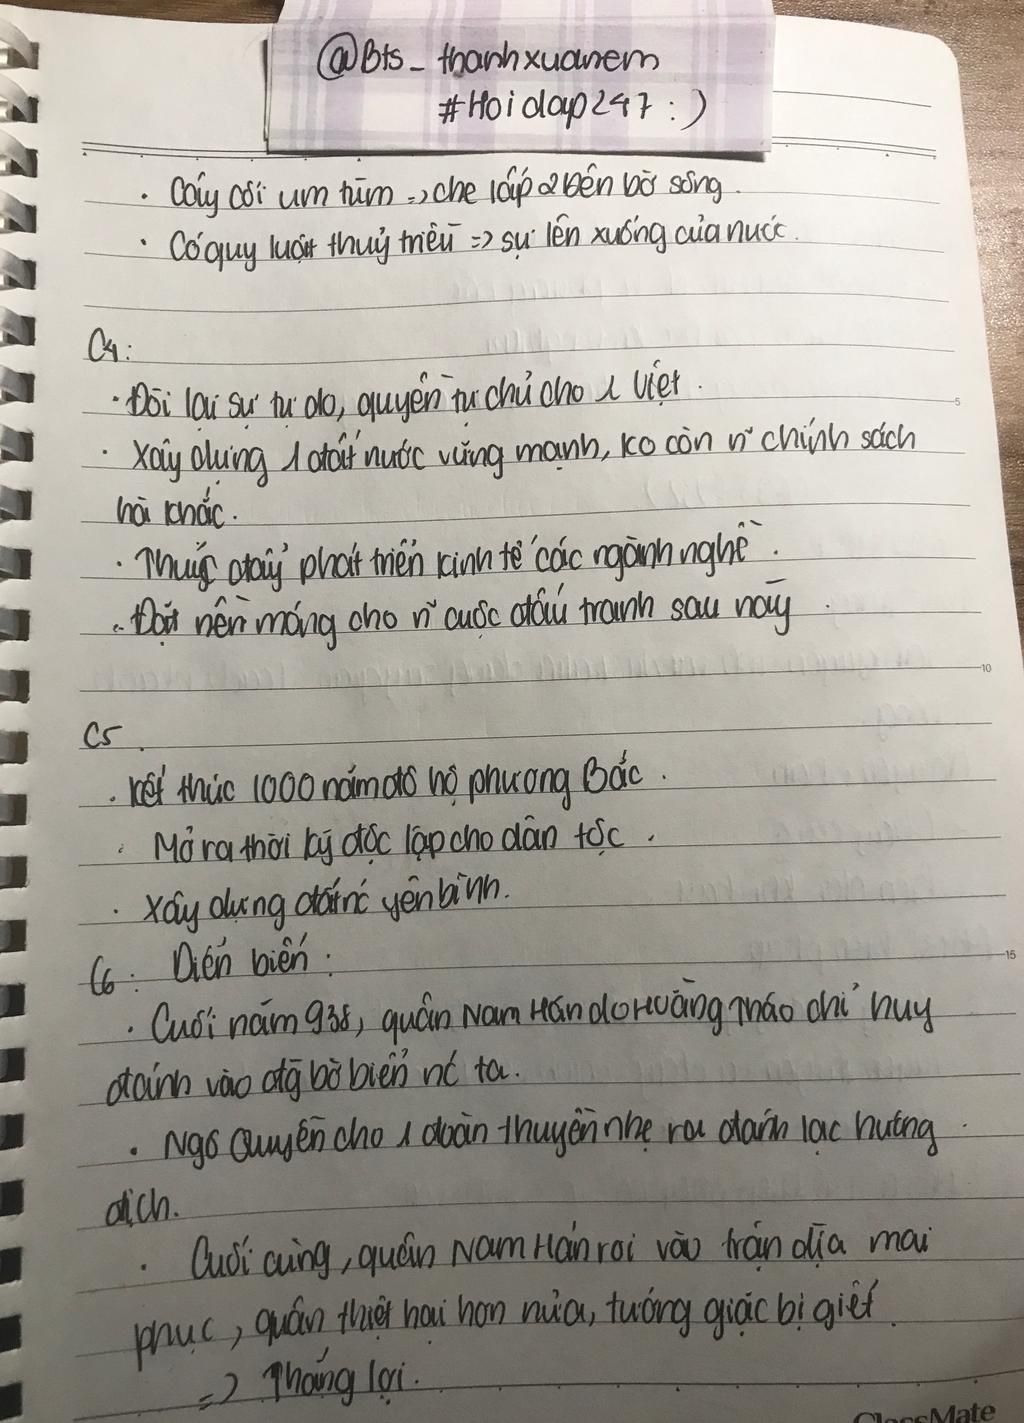 @Bts_thanhxuanem
#Hoidap247 :)
· Cây cối um tùm => che lấp 2 bên bờ sông.
· Có quy luật thuỷ triều => sự lên xuống của nước.
C4:
· Đòi lại sự tự do, quyền tự chủ cho 1 Việt.
· Xây dựng 1 đất nước vững mạnh, ko còn n~ chính sách
hà khắc.
· Thúc đẩy phát triển kinh tế các ngành nghề.
· Đặt nền móng cho n~ cuộc đấu tranh sau này.
C5.
· Kết thúc 1000 năm đô hộ phương Bắc.
· Mở ra thời kỳ độc lập cho dân tộc.
· Xây dựng đất nc yên bình.
C6: Diến biến:
· Cuối năm 938, quân Nam Hán do Hoằng Tháo chỉ huy
đánh vào bờ biển nc ta.
· Ngô Quyền cho 1 đoàn thuyền nhẹ ra đánh lạc hướng
địch.
· Cuối cùng, quân Nam Hán rơi vào trận địa mai
phục, quân thiệt hại hơn nửa, tướng giặc bị giết.
=> Thắng lợi.
ClassMate
5
10
15